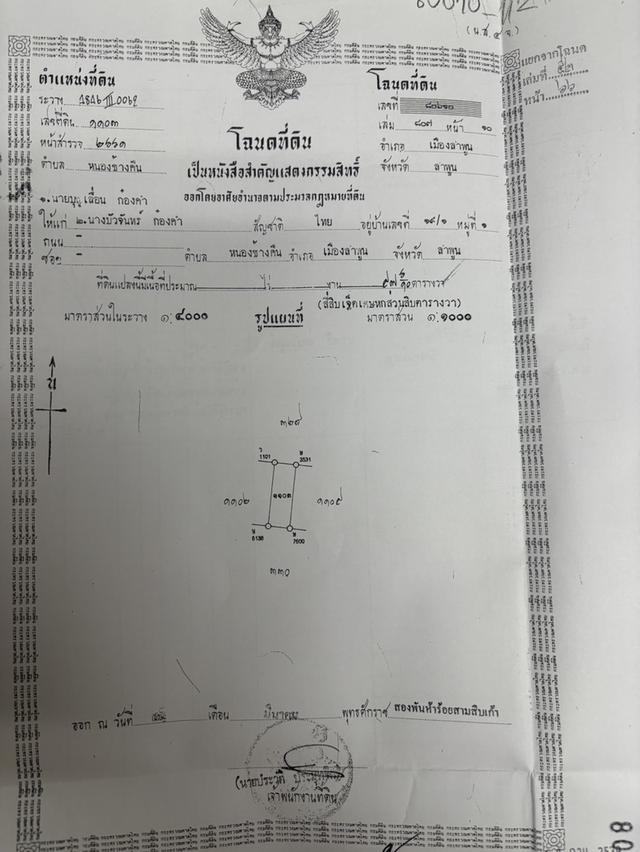 (น.ส. ๔ จ.)
ตำแหน่งที่ดิน
ระวาง 4846 III 0062
เลขที่ดิน ๑๑๐๓
หน้าสำรวจ ๒๖๖๑
ตำบล หนองช้างคืน
โฉนดที่ดิน
เลขที่
เล่ม ๘๐๗ หน้า ๑๐
อำเภอ เมืองลำพูน
จังหวัด ลำพูน
แยกจากโฉนด
เล่มที่ ๕๒
หน้า ๖๖
โฉนดที่ดิน
เป็นหนังสือสำคัญแสดงกรรมสิทธิ์
ออกโดยอาศัยอำนาจตามประมวลกฎหมายที่ดิน
๑. นายบุญเลื่อน ก๋องคำ
ให้แก่ ๒. นางบัวจันทร์ ก๋องคำ สัญชาติ ไทย อยู่บ้านเลขที่ ๑๙/๑ หมู่ที่ ๑
ถนน -
ซอย - ตำบล หนองช้างคืน อำเภอ เมืองลำพูน จังหวัด ลำพูน
ที่ดินแปลงนี้มีเนื้อที่ประมาณ ไร่ งาน ๔๗ ๖/๑๐ ตารางวา
(สี่สิบเจ็ดเศษหกส่วนสิบตารางวา)
มาตราส่วนในระวาง ๑:๔๐๐๐ รูปแผนที่ มาตราส่วน ๑:๑๐๐๐
น
๓๒๙
ว
1101
ษ
3531
๑๑๐๒
๑๑๐๓
๑๑๐๙
6138
7600
๓๓๐
ออก ณ วันที่ เดือน มีนาคม พุทธศักราช สองพันห้าร้อยสามสิบเก้า
(นายประวุติ
เจ้าพนักงานที่ดิน
80